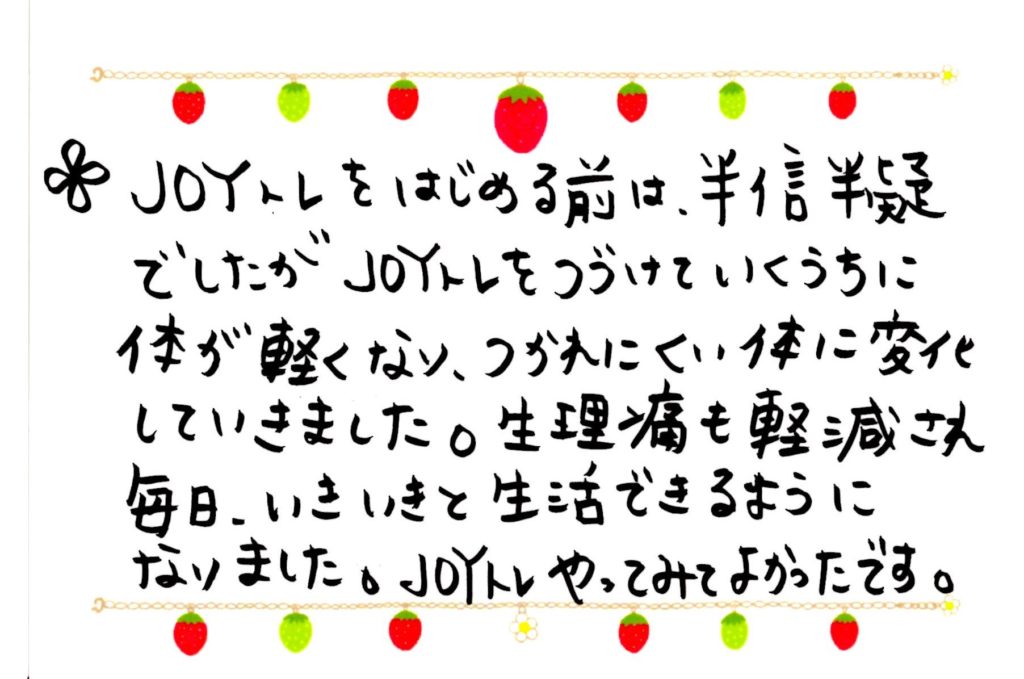 JOYトレをはじめる前は、半信半疑
でしたが JOYトレをつづけていくうちに
体が軽くなり、つかれにくい体に変化
していきました。生理痛も軽減され
毎日、いきいきと生活できるように
なりました。JOYトレやってみてよかったです。